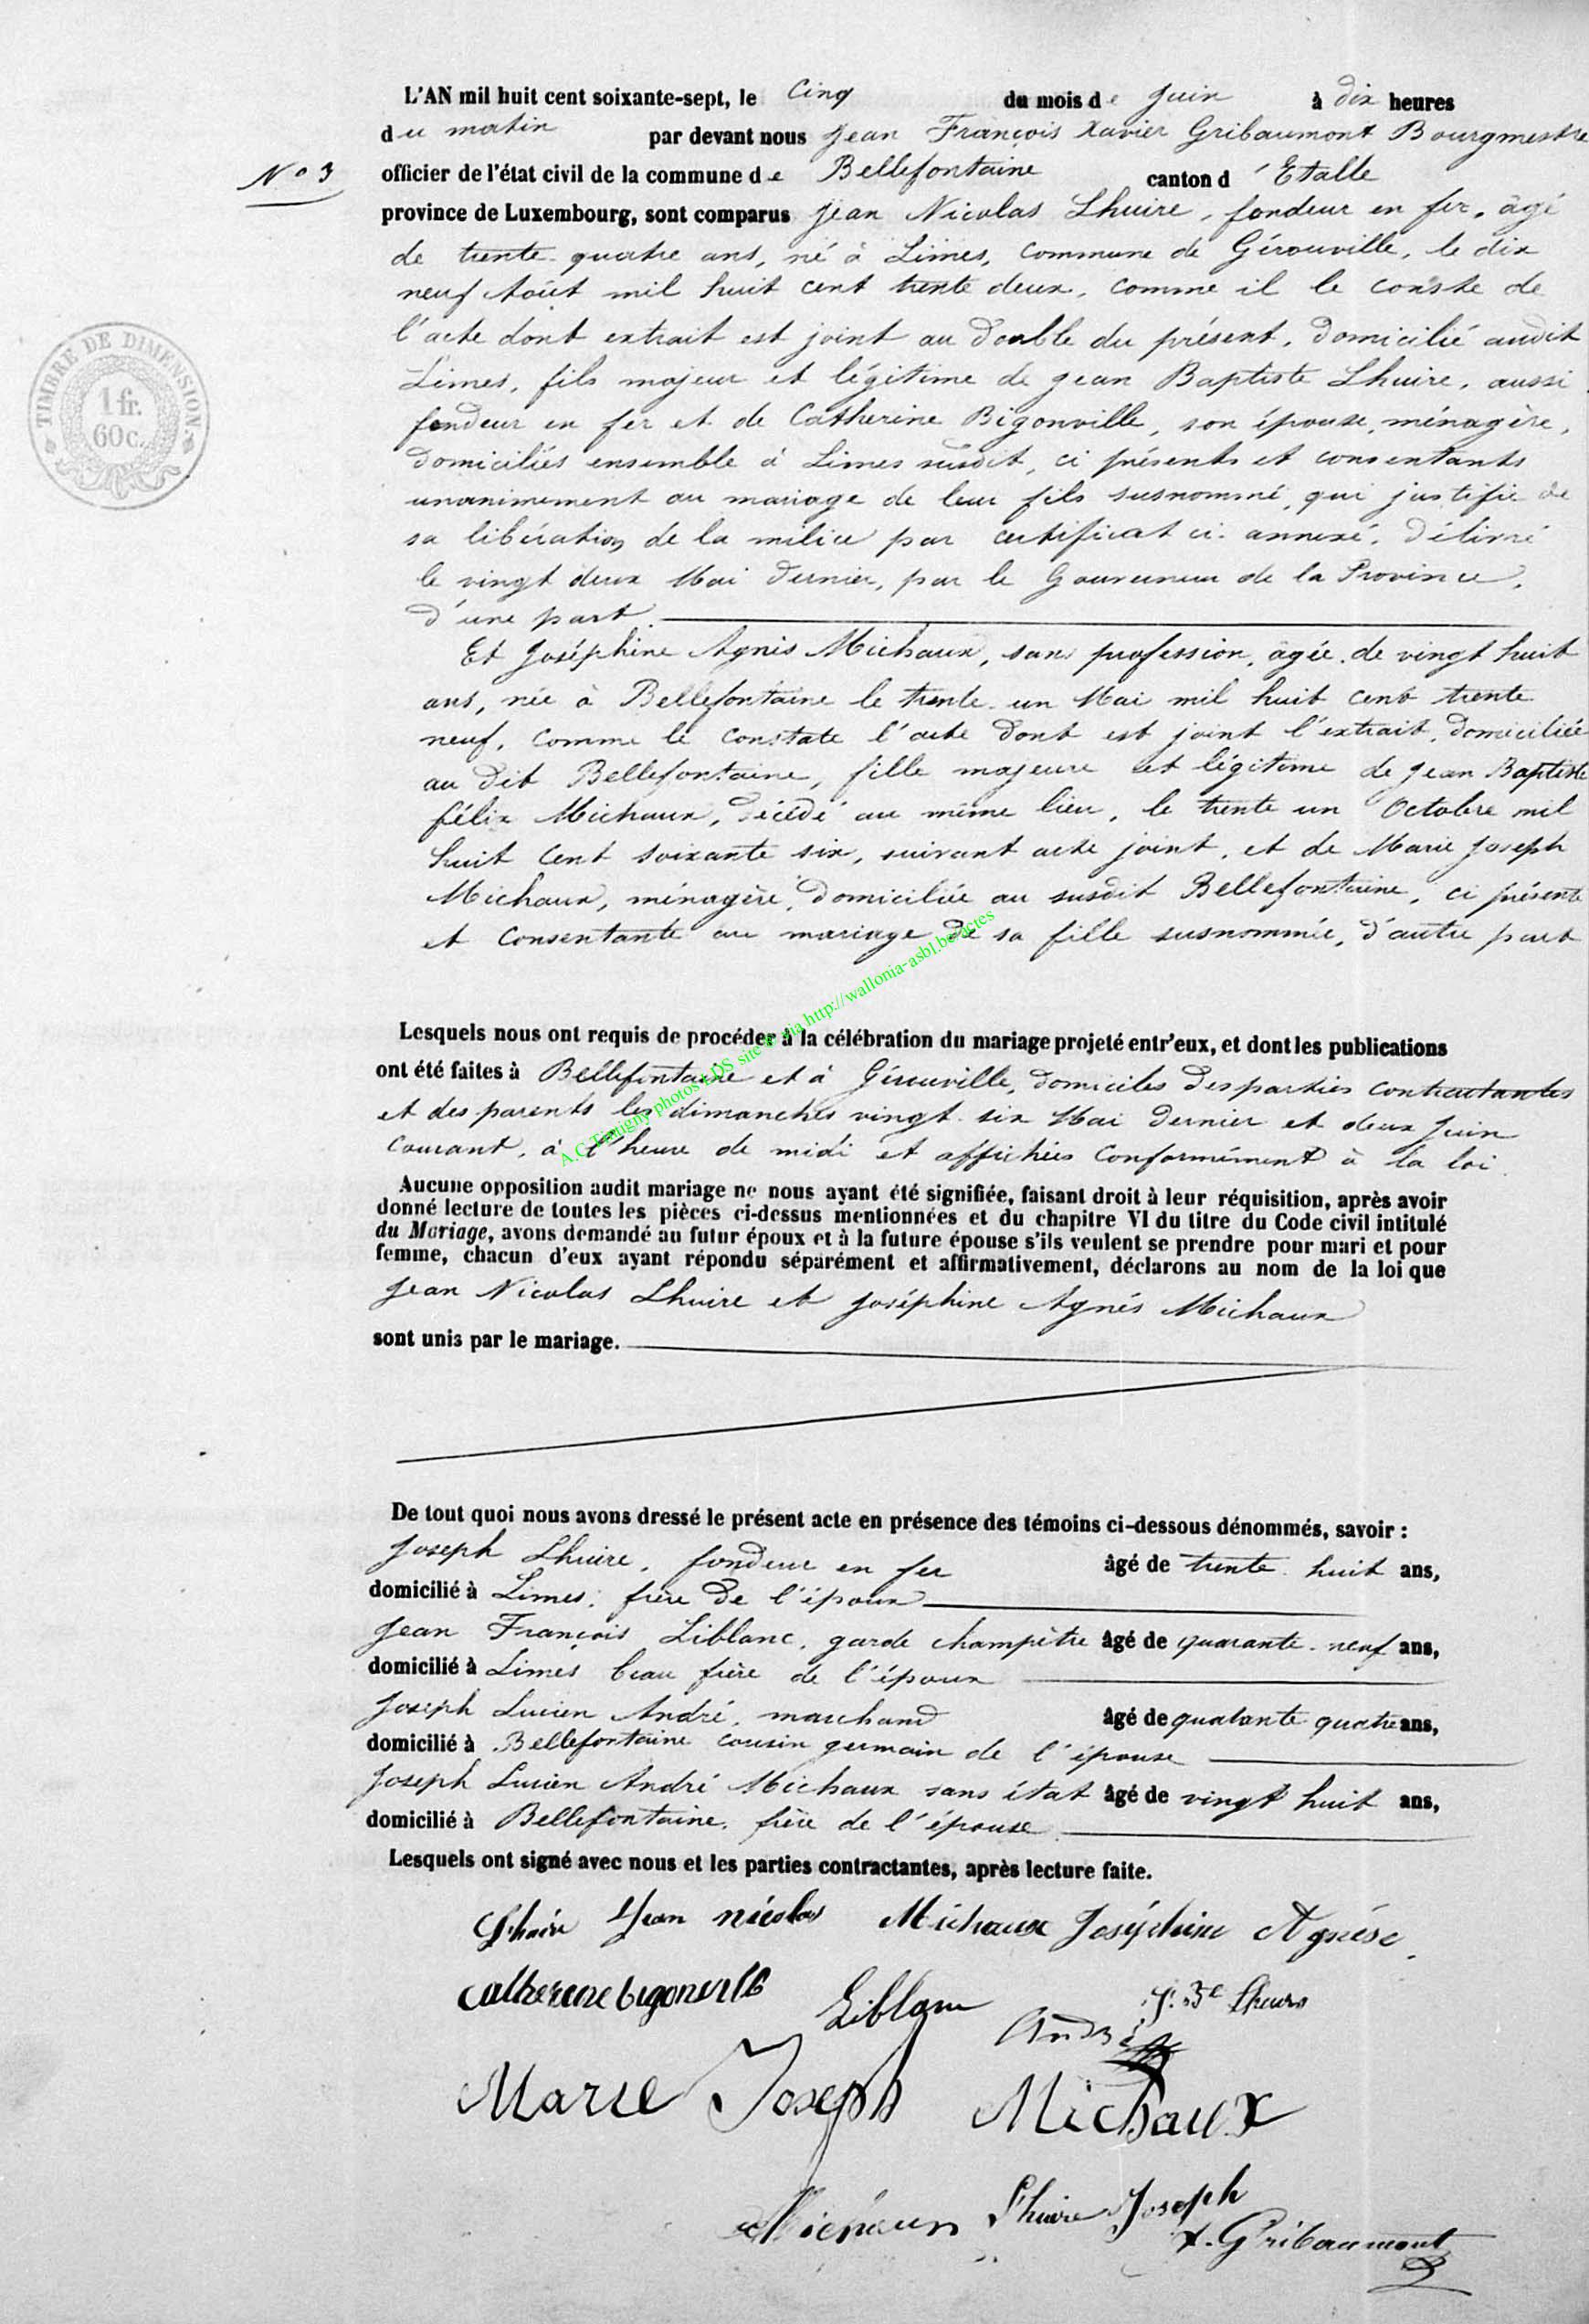 L'AN mil huit cent soixante-sept, le Cinq du mois de Juin à dix heures
du matin par devant nous Jean François Xavier Gribaumont Bourgmestre
N° 3 officier de l'état civil de la commune de Bellefontaine canton d'Etalle
province de Luxembourg, sont comparus Jean Nicolas Lhuire, fondeur en fer, âgé
de trente-quatre ans, né à Limes, commune de Gérouville, le dix
neuf Août mil huit cent trente deux, comme il le conste de
l'acte dont extrait est joint au double du présent, domicilié audit
Limes, fils majeur et légitime de Jean Baptiste Lhuire, aussi
fondeur en fer et de Catherine Bigonville, son épouse, ménagère,
domiciliés ensemble à Limes susdit, ci présents et consentants
unanimement au mariage de leur fils susnommé, qui justifie de
sa libération de la milice par certificat ci-annexé, délivré
le vingt deux Mai dernier, par le Gouverneur de la Province,
d'une part.
Et Joséphine Agnès Michaux, sans profession, âgée de vingt huit
ans, née à Bellefontaine le trente-un Mai mil huit cent trente
neuf, comme le constate l'acte dont est joint l'extrait, domiciliée
au dit Bellefontaine, fille majeure et légitime de Jean Baptiste
félix Michaux, décédé au même lieu, le trente un Octobre mil
huit cent soixante six, suivant acte joint, et de Marie Joseph
Michaux, ménagère, domiciliée au susdit Bellefontaine, ci présente
et consentante au mariage de sa fille susnommée, d'autre part
A.C. Tintigny photos LDS site via http://wallonia-asbl.be/actes
Lesquels nous ont requis de procéder à la célébration du mariage projeté entr'eux, et dont les publications
ont été faites à Bellefontaine et à Gérouville, domiciles des parties contractantes
et des parents les dimanches vingt-six Mai dernier et deux Juin
courant, à l'heure de midi et affichées conformément à la loi.
Aucune opposition audit mariage ne nous ayant été signifiée, faisant droit à leur réquisition, après avoir
donné lecture de toutes les pièces ci-dessus mentionnées et du chapitre VI du titre du Code civil intitulé
du Mariage, avons demandé au futur époux et à la future épouse s'ils veulent se prendre pour mari et pour
femme, chacun d'eux ayant répondu séparément et affirmativement, déclarons au nom de la loi que
Jean Nicolas Lhuire et Joséphine Agnès Michaux
sont unis par le mariage.
De tout quoi nous avons dressé le présent acte en présence des témoins ci-dessous dénommés, savoir :
Joseph Lhuire, fondeur en fer âgé de trente-huit ans,
domicilié à Limes, frère de l'époux
Jean François Liblanc, garde champêtre âgé de quarante-neuf ans,
domicilié à Limes beau frère de l'époux
Joseph Lucien André, marchand âgé de quatante quatre ans,
domicilié à Bellefontaine cousin germain de l'épouse
Joseph Lucien André Michaux sans état âgé de vingt huit ans,
domicilié à Bellefontaine, frère de l'épouse
Lesquels ont signé avec nous et les parties contractantes, après lecture faite.
Lhuire Jean nicolas Michaux Joséphine Agnése
catherine bigonville Liblanc André J. Bte Lhuire
Marie Joseph Michaux
Michaux Lhuire Joseph
X. Gribaumont
TIMBRE DE DIMENSION
1 fr.
60 c.